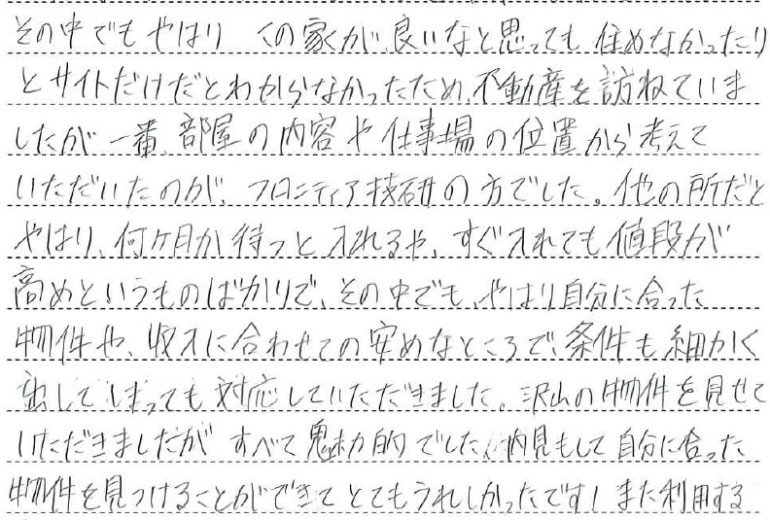 その中でもやはり この家が、良いなと思っても 住めなかったり
とサイトだけだとわからなかったため、不動産を訪ねていま
したが 一番、部屋の内容や仕事場の位置から考えて
いただいたのが、フロンティア技研の方でした。他の所だと
やはり、何ヶ月か待つと入れるや、すぐ入れても値段が
高めというものばかりで、その中でも、やはり自分に合った
物件や、収入に合わせての安めなところで、条件も細かく
出してしまっても対応していただきました。沢山の物件を見せて
いただきましたが すべて魅力的でした、内見もして自分に合った
物件を見つけることができてとてもうれしかったです! また利用する